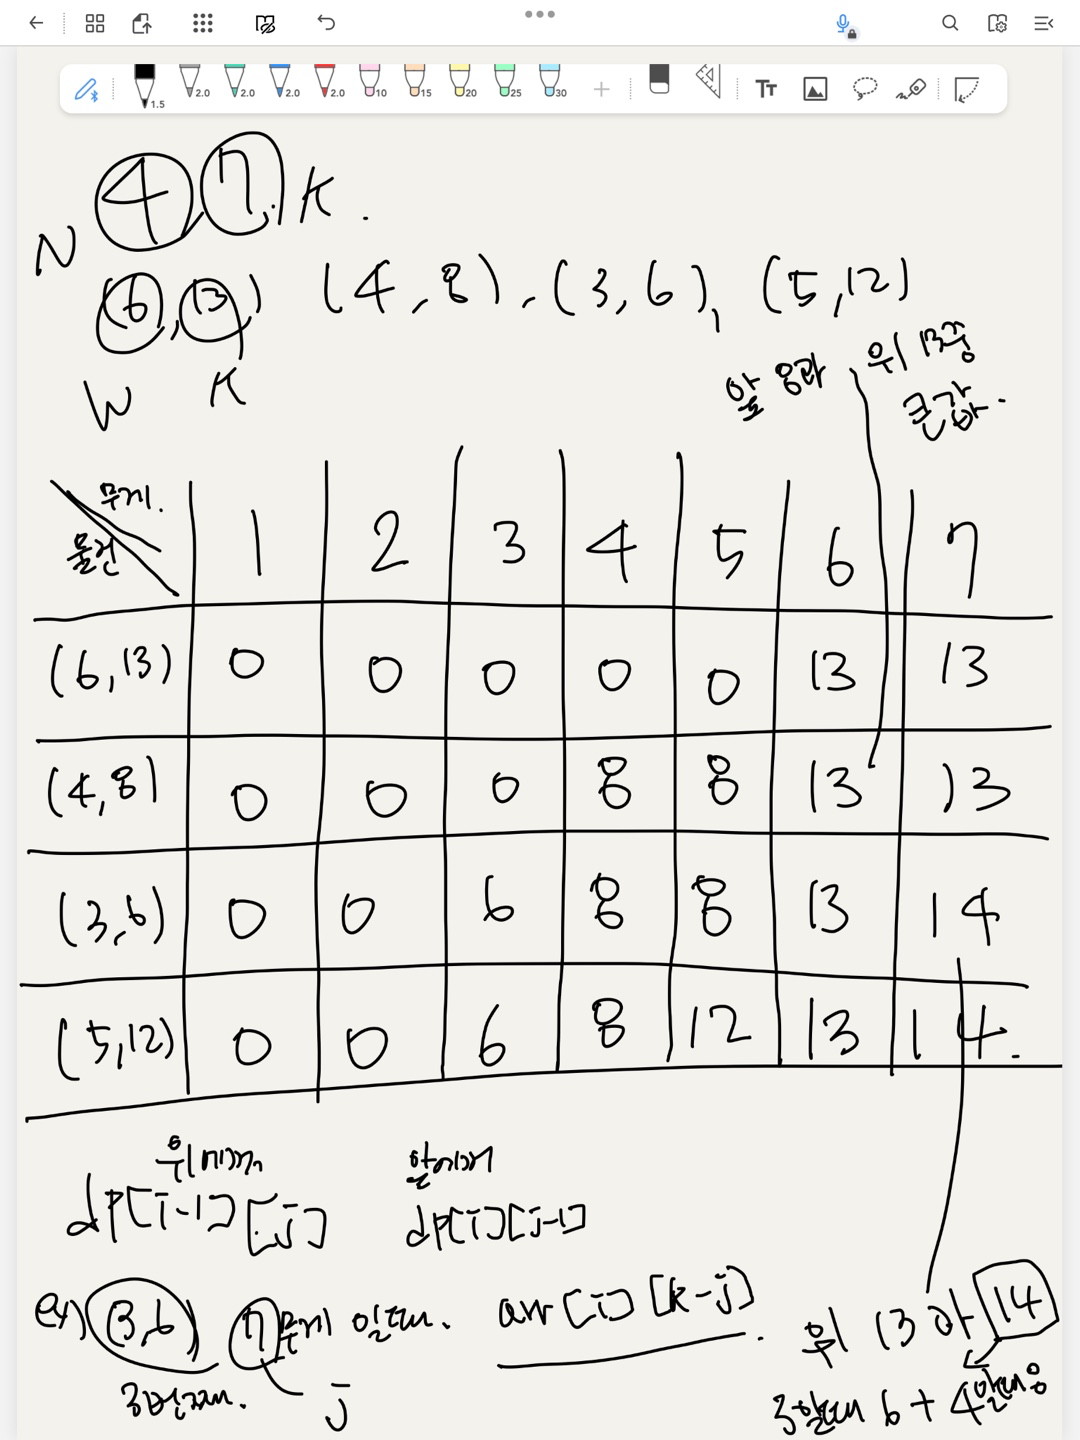 1.5 2.0 2.0 2.0 2.0 10 15 20 25 30 Tt
4, 7, K.
N
(6, 13,) (4, 8), (3, 6), (5, 12)
W K
앞 8과 위 13중
큰값.
무게.
물건 1 2 3 4 5 6 7
(6, 13) 0 0 0 0 0 13 13
(4, 8) 0 0 0 8 8 13 13
(3, 6) 0 0 6 8 8 13 14
(5, 12) 0 0 6 8 12 13 14.
dp[i-1][j] dp[i][j-1]
ex) (3, 6) 7 무게 일때. arr[i][k-j].
위 13 아 14
3번째. j
3일때 6 + 4일때 8